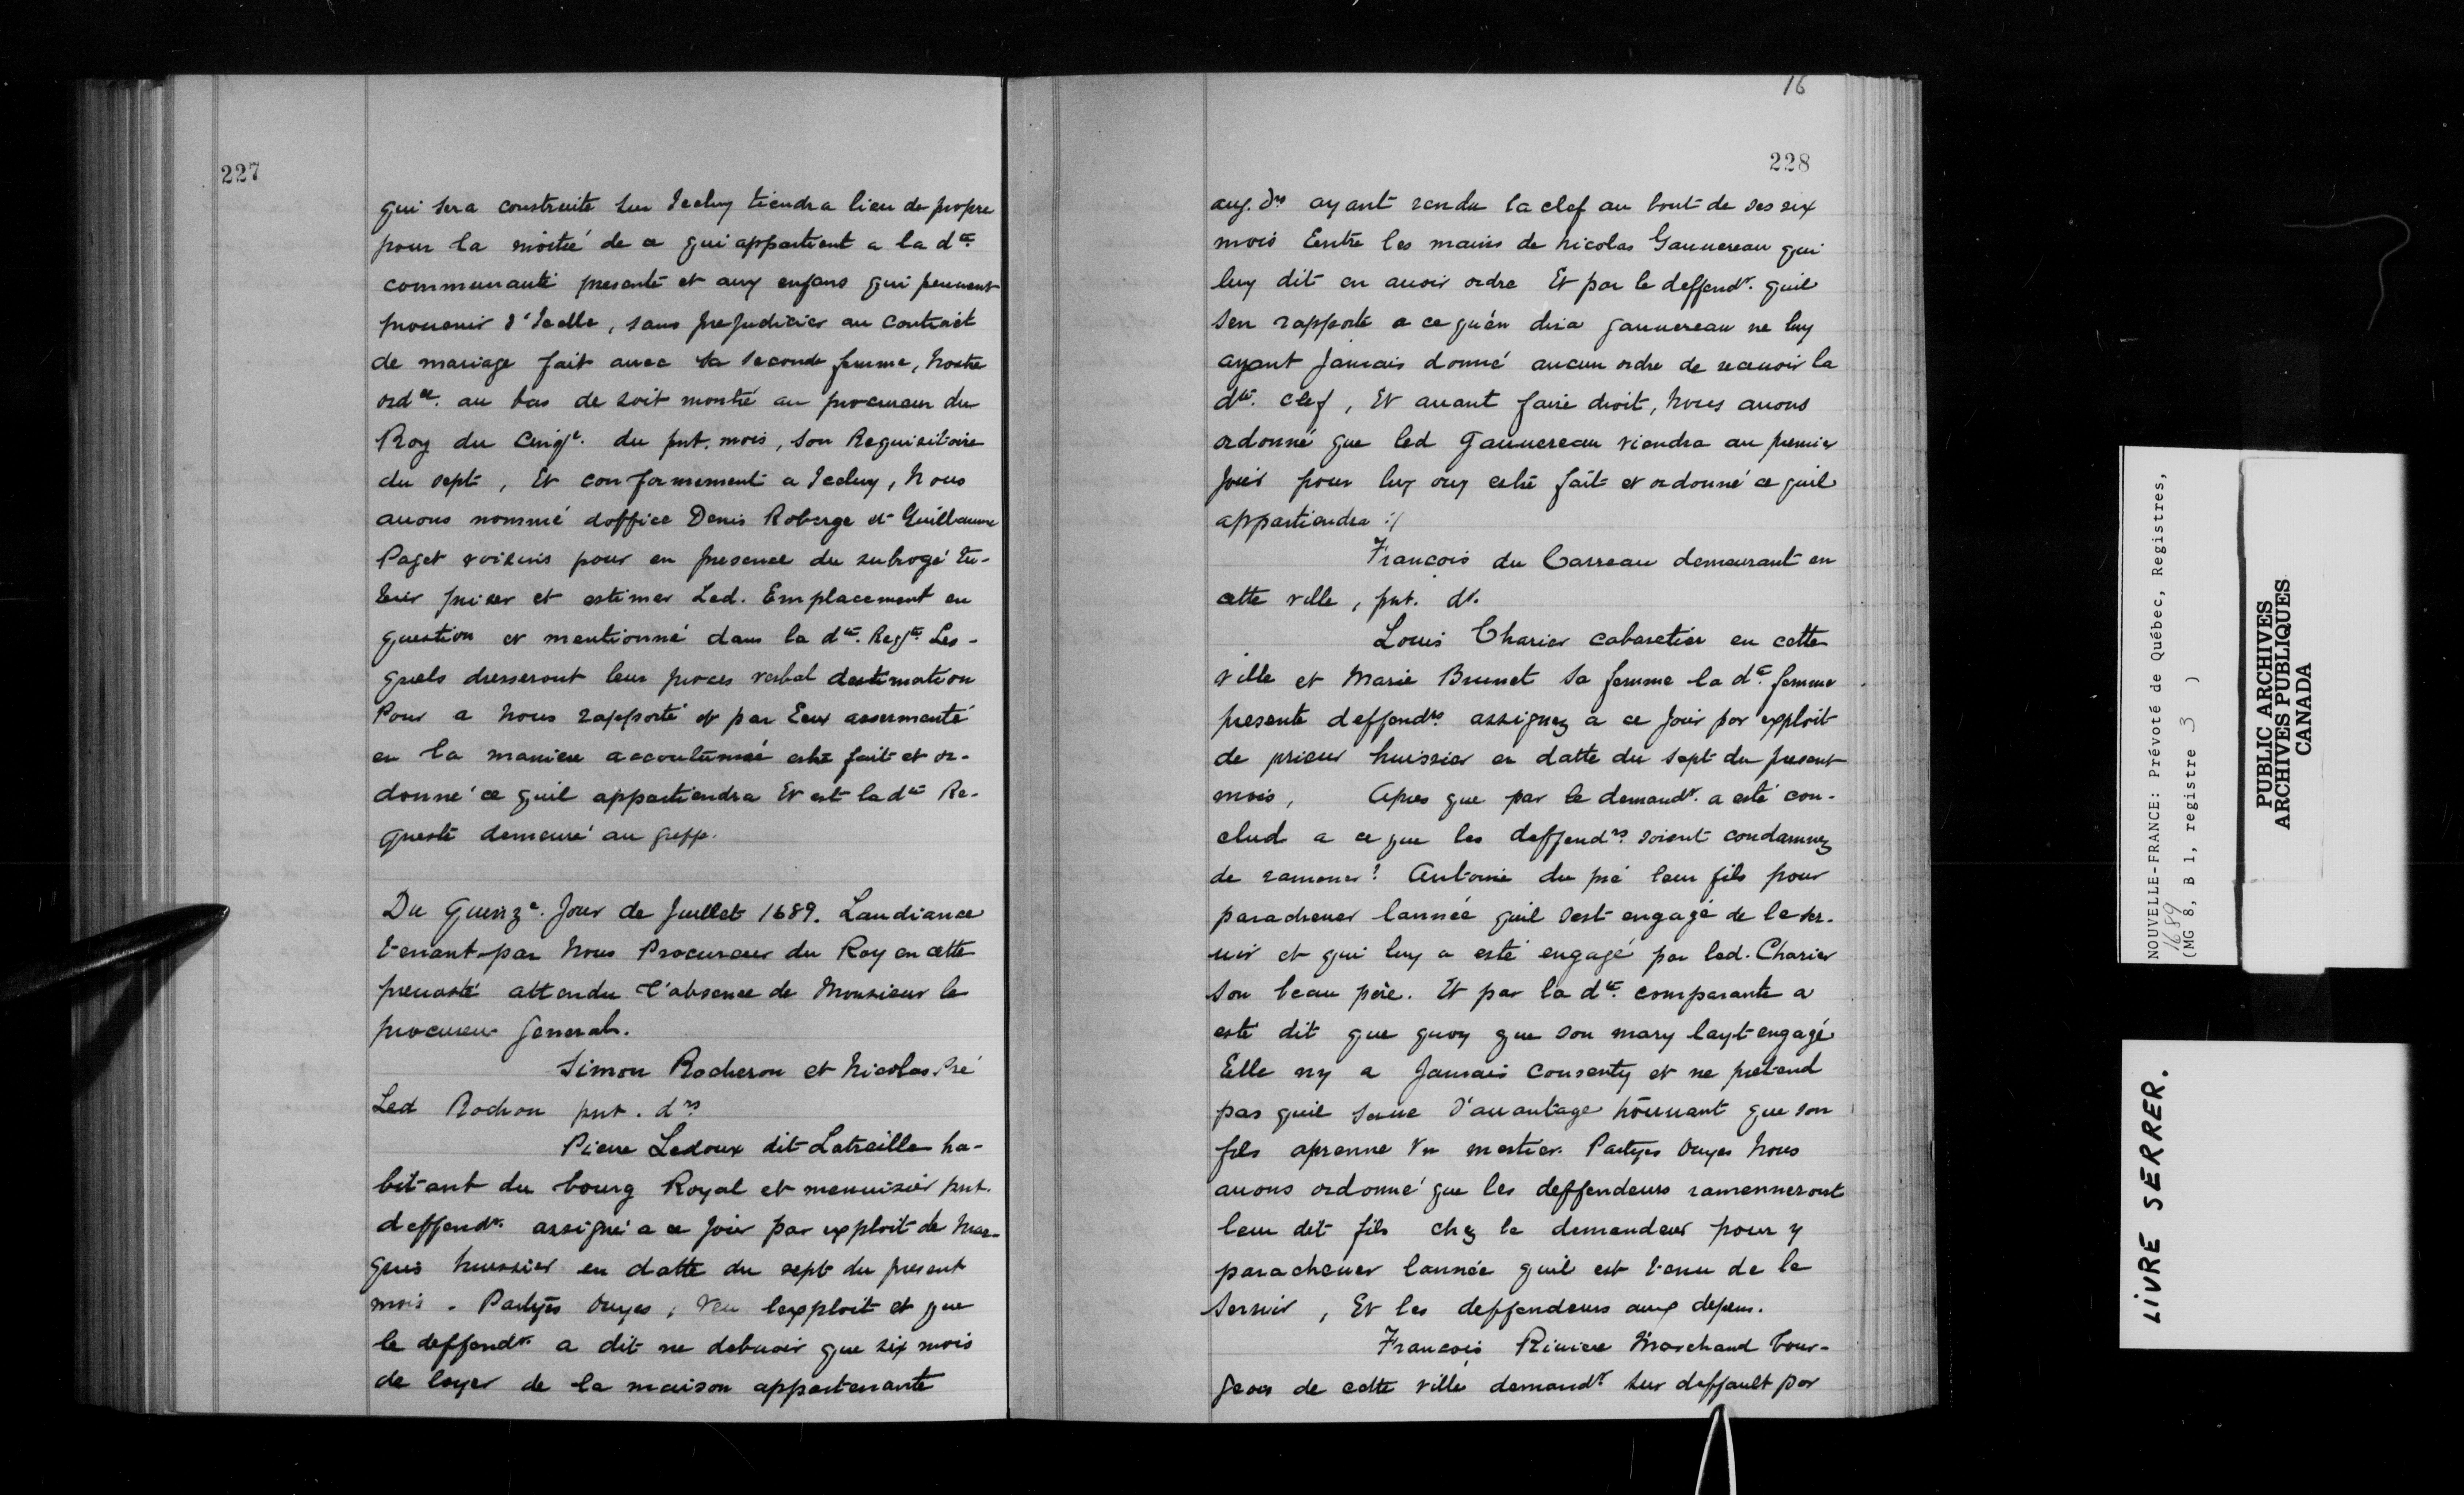 227
qui sera construite sur Iceluy tiendra lieu de propre
pour la moitié de ce qui appartient a la dte.
communauté presente et aux enfans qui peuuent
prouenir d'Icelle, sans prejudicier au contract
de mariage fait auec sa seconde femme, Nostre
ordce. au bas de soit montré au procureur du
Roy du Cinqe. du pnt. mois, son Requisitoire
du sept, Et conformement a Iceluy, Nous
auons nommé doffice Denis Roberge et Guillaume
Paget voisins pour en presence du subrogé tu-
teur priser et estimer Led. Emplacement en
question et mentionné dans la dte. Reqte. Les-
quels dresseront leur proces verbal destimation
Pour a Nous rapporté et par Eux assermenté
en la maniere accoutumée estre fait et or-
donné ce quil appartiendra Et est la dte Re-
queste demeuré au greffe.
Du Quinze. Jour de Juillet 1689. Laudiance
tenant par Nous Procureur du Roy en cette
preuosté attendu l'absence de Monsieur le
procureur general.
Simon Rocheron et Nicolas Pré
Led Rochon pnt. drs
Pierre Ledoux dit Latreille ha-
bitant du bourg Royal et menuisier pnt.
deffendr. assigné a ce jour par exploit de Mar-
quis huissier en datte du sept du present
mois. Partyes ouyes, Veu lexploit et que
le deffendr. a dit ne debuoir que six mois
de loyer de la maison appartenante
16
228
aux. drs ayant rendu la clef au bout de ses six
mois Entre les mains de Nicolas Gauuereau qui
luy dit en auoir ordre Et par le deffendr. quil
sen rapporte a ce qu'en dira gauuereau ne luy
ayant Jamais donné aucun ordre de receuoir la
dte. clef, Et auant faire droit, Nous auons
ordonné que led Gauuereau viendra au premier
Jour pour luy ouy estre fait et ordonné ce quil
appartiendra :/
François du Carreau demeurant en
cette ville, pnt. dr.
Louis Charier cabaretier en cette
ville et Marie Brunet sa femme la de. femme
presente deffendrs. assignez a ce Jour par exploit
de prieur huissier en datte du sept du present
mois, Apres que par le demandr. a esté con-
clud a ce que les deffendrs. soient condamnez
de ramener? Antoine du pré leur fils pour
paracheuer lannée quil sest engagé de le ser-
uir et qui luy a esté engagé par led. Charier
son beau père. Et par la dte. comparante a
esté dit que quoy que son mary layt engagé
Elle ny a Jamais consenty et ne pretend
pas quil serue d'auantage trouuant que son
fils aprenne Vn mestier. Partyes Ouyes Nous
auons ordonné que les deffendeurs ramenneront
leur dit fils chez le demandeur pour y
paracheuer lannée quil est tenu de le
Seruir, Et les deffendeurs aux depens.
François Riuiere Marchand bour-
geois de cette ville demandr. sur deffault par
NOUVELLE-FRANCE: Prévoté de Québec, Registres,
1689
(MG 8, B 1, registre 3 )
PUBLIC ARCHIVES
ARCHIVES PUBLIQUES
CANADA
LIVRE SERRER.